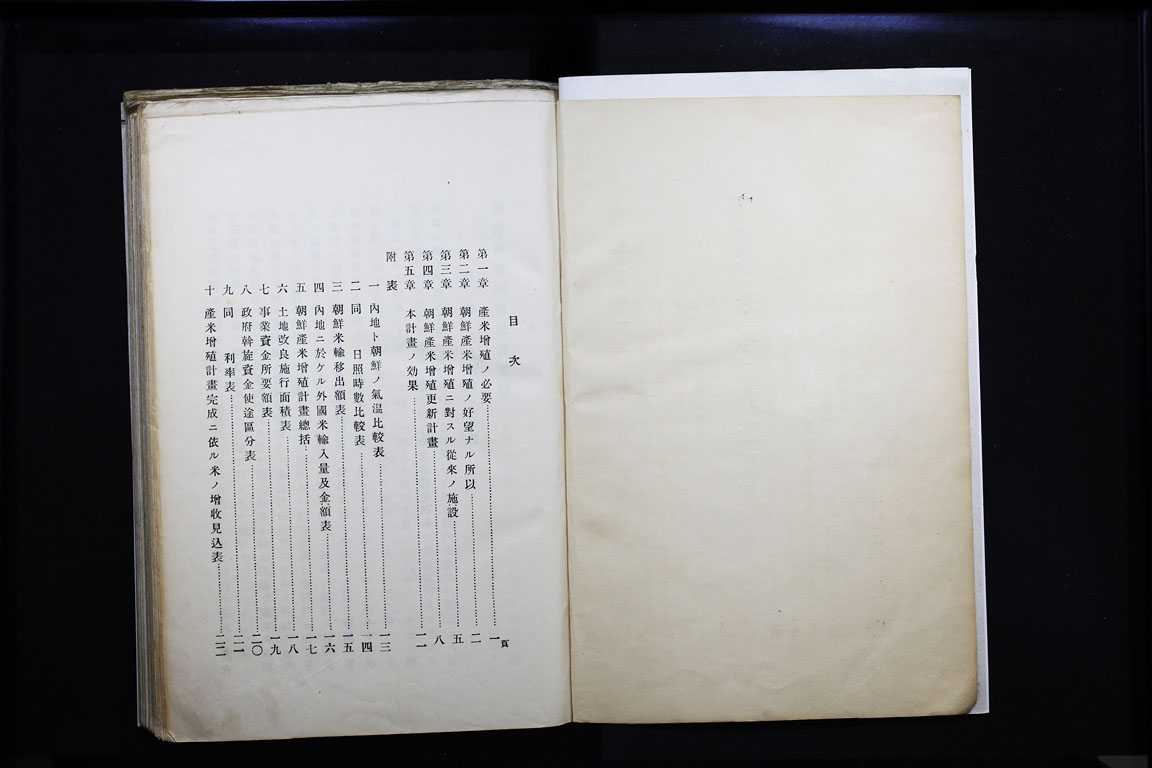 目次
頁
第一章 產米增殖ノ必要…………一
第二章 朝鮮產米增殖ノ好望ナル所以…………二
第三章 朝鮮產米增殖ニ對スル從來ノ施設…………五
第四章 朝鮮產米增殖更新計畫…………八
第五章 本計畫ノ効果…………一一
附表
一 內地ト朝鮮ノ氣温比較表…………一三
二 同 日照時數比較表…………一四
三 朝鮮米輸移出額表…………一五
四 內地ニ於ケル外國米輸入量及金額表…………一六
五 朝鮮產米增殖計畫總括…………一七
六 土地改良施行面積表…………一八
七 事業資金所要額表…………一九
八 政府斡旋資金使途區分表…………二〇
九 同 利率表…………二一
十 產米增殖計畫完成ニ依ル米ノ增收見込表…………二二